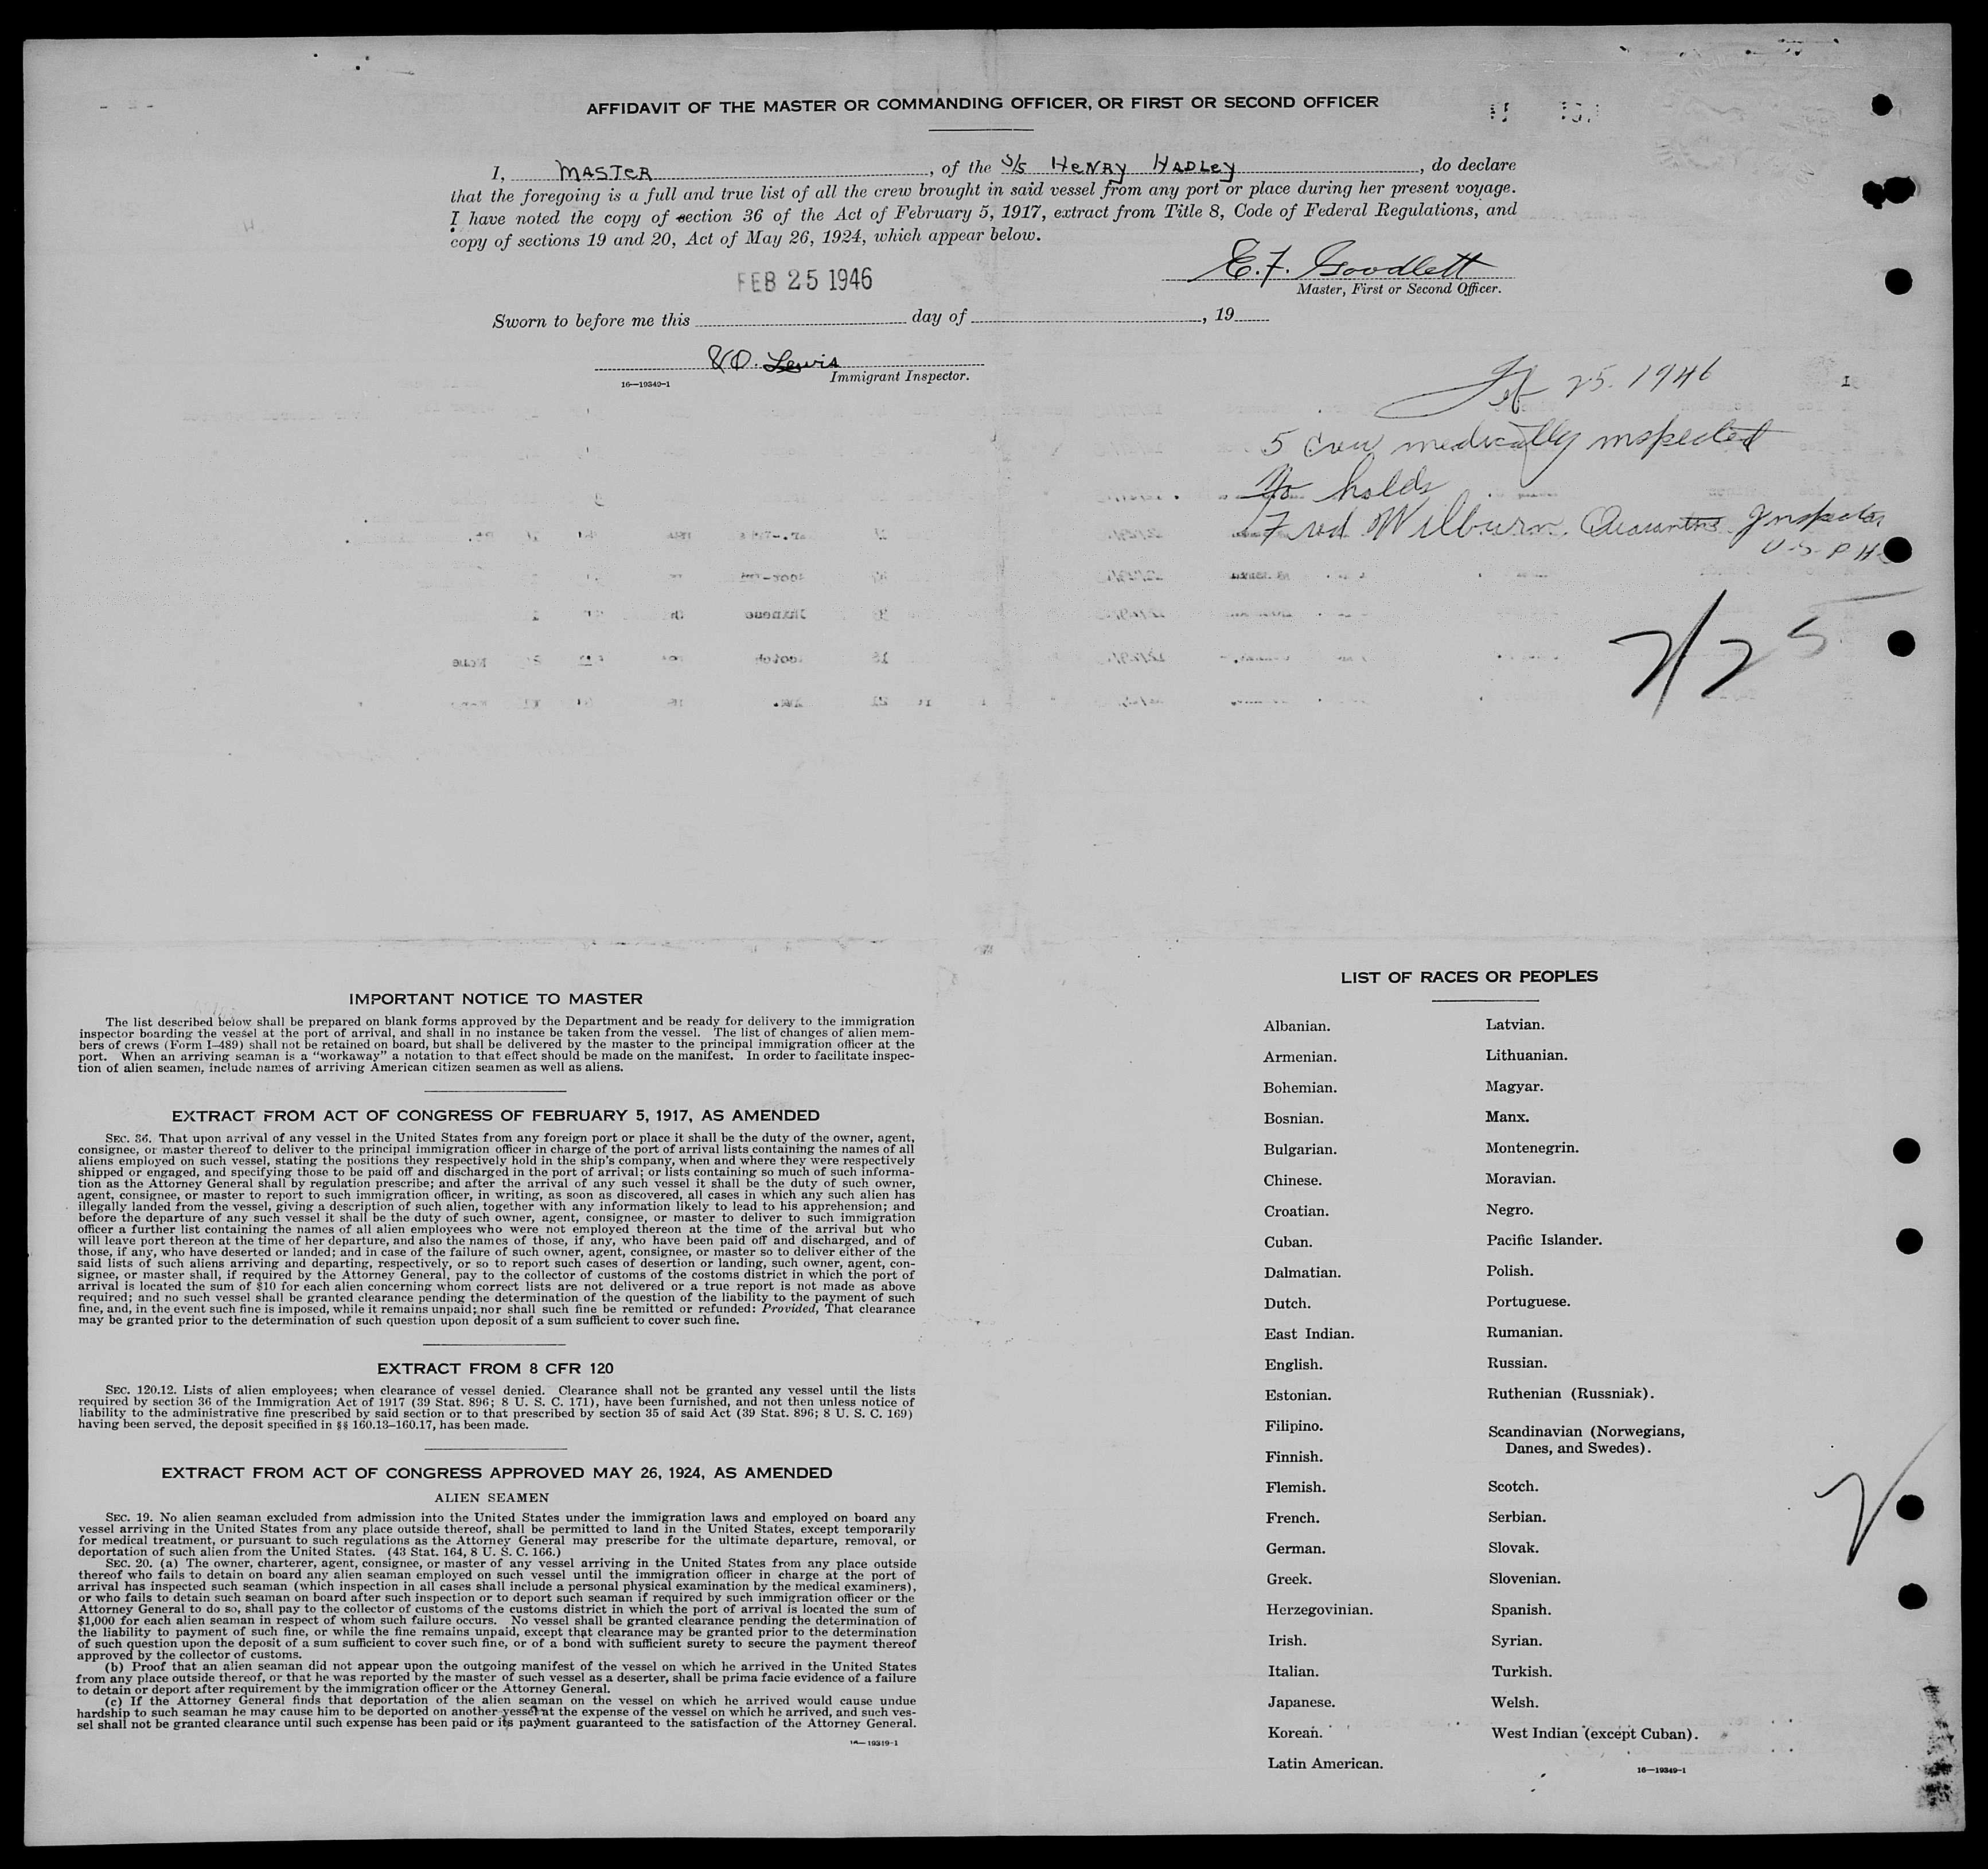 AFFIDAVIT OF THE MASTER OR COMMANDING OFFICER, OR FIRST OR SECOND OFFICER
I, MASTER, of the S/S HENRY HADLEY, do declare
that the foregoing is a full and true list of all the crew brought in said vessel from any port or place during her present voyage.
I have noted the copy of section 36 of the Act of February 5, 1917, extract from Title 8, Code of Federal Regulations, and
copy of sections 19 and 20, Act of May 26, 1924, which appear below.
E. F. Goodlett
Master, First or Second Officer.
FEB 25 1946
Sworn to before me this day of , 19
Lewis
16—19349-1 Immigrant Inspector.
Feb 25. 1946
5 crew medically inspected
No holds
Fred Wilburn. Quarantine Inspector
U.S.P.H.
2/25
IMPORTANT NOTICE TO MASTER
The list described below shall be prepared on blank forms approved by the Department and be ready for delivery to the immigration
inspector boarding the vessel at the port of arrival, and shall in no instance be taken from the vessel. The list of changes of alien mem-
bers of crews (Form I-489) shall not be retained on board, but shall be delivered by the master to the principal immigration officer at the
port. When an arriving seaman is a "workaway" a notation to that effect should be made on the manifest. In order to facilitate inspec-
tion of alien seamen, include names of arriving American citizen seamen as well as aliens.
EXTRACT FROM ACT OF CONGRESS OF FEBRUARY 5, 1917, AS AMENDED
SEC. 36. That upon arrival of any vessel in the United States from any foreign port or place it shall be the duty of the owner, agent,
consignee, or master thereof to deliver to the principal immigration officer in charge of the port of arrival lists containing the names of all
aliens employed on such vessel, stating the positions they respectively hold in the ship's company, when and where they were respectively
shipped or engaged, and specifying those to be paid off and discharged in the port of arrival; or lists containing so much of such informa-
tion as the Attorney General shall by regulation prescribe; and after the arrival of any such vessel it shall be the duty of such owner,
agent, consignee, or master to report to such immigration officer, in writing, as soon as discovered, all cases in which any such alien has
illegally landed from the vessel, giving a description of such alien, together with any information likely to lead to his apprehension; and
before the departure of any such vessel it shall be the duty of such owner, agent, consignee, or master to deliver to such immigration
officer a further list containing the names of all alien employees who were not employed thereon at the time of the arrival but who
will leave port thereon at the time of her departure, and also the names of those, if any, who have been paid off and discharged, and of
those, if any, who have deserted or landed; and in case of the failure of such owner, agent, consignee, or master so to deliver either of the
said lists of such aliens arriving and departing, respectively, or so to report such cases of desertion or landing, such owner, agent, con-
signee, or master shall, if required by the Attorney General, pay to the collector of customs of the costoms district in which the port of
arrival is located the sum of $10 for each alien concerning whom correct lists are not delivered or a true report is not made as above
required; and no such vessel shall be granted clearance pending the determination of the question of the liability to the payment of such
fine, and, in the event such fine is imposed, while it remains unpaid; nor shall such fine be remitted or refunded: Provided, That clearance
may be granted prior to the determination of such question upon deposit of a sum sufficient to cover such fine.
EXTRACT FROM 8 CFR 120
SEC. 120.12. Lists of alien employees; when clearance of vessel denied. Clearance shall not be granted any vessel until the lists
required by section 36 of the Immigration Act of 1917 (39 Stat. 896; 8 U. S. C. 171), have been furnished, and not then unless notice of
liability to the administrative fine prescribed by said section or to that prescribed by section 35 of said Act (39 Stat. 896; 8 U. S. C. 169)
having been served, the deposit specified in §§ 160.13–160.17, has been made.
EXTRACT FROM ACT OF CONGRESS APPROVED MAY 26, 1924, AS AMENDED
ALIEN SEAMEN
SEC. 19. No alien seaman excluded from admission into the United States under the immigration laws and employed on board any
vessel arriving in the United States from any place outside thereof, shall be permitted to land in the United States, except temporarily
for medical treatment, or pursuant to such regulations as the Attorney General may prescribe for the ultimate departure, removal, or
deportation of such alien from the United States. (43 Stat. 164, 8 U. S. C. 166.)
SEC. 20. (a) The owner, charterer, agent, consignee, or master of any vessel arriving in the United States from any place outside
thereof who fails to detain on board any alien seaman employed on such vessel until the immigration officer in charge at the port of
arrival has inspected such seaman (which inspection in all cases shall include a personal physical examination by the medical examiners),
or who fails to detain such seaman on board after such inspection or to deport such seaman if required by such immigration officer or the
Attorney General to do so, shall pay to the collector of customs of the customs district in which the port of arrival is located the sum of
$1,000 for each alien seaman in respect of whom such failure occurs. No vessel shall be granted clearance pending the determination of
the liability to payment of such fine, or while the fine remains unpaid, except that clearance may be granted prior to the determination
of such question upon the deposit of a sum sufficient to cover such fine, or of a bond with sufficient surety to secure the payment thereof
approved by the collector of customs.
(b) Proof that an alien seaman did not appear upon the outgoing manifest of the vessel on which he arrived in the United States
from any place outside thereof, or that he was reported by the master of such vessel as a deserter, shall be prima facie evidence of a failure
to detain or deport after requirement by the immigration officer or the Attorney General.
(c) If the Attorney General finds that deportation of the alien seaman on the vessel on which he arrived would cause undue
hardship to such seaman he may cause him to be deported on another vessel at the expense of the vessel on which he arrived, and such ves-
sel shall not be granted clearance until such expense has been paid or its payment guaranteed to the satisfaction of the Attorney General.
16—19349-1
LIST OF RACES OR PEOPLES
Albanian.
Armenian.
Bohemian.
Bosnian.
Bulgarian.
Chinese.
Croatian.
Cuban.
Dalmatian.
Dutch.
East Indian.
English.
Estonian.
Filipino.
Finnish.
Flemish.
French.
German.
Greek.
Herzegovinian.
Irish.
Italian.
Japanese.
Korean.
Latin American.
Latvian.
Lithuanian.
Magyar.
Manx.
Montenegrin.
Moravian.
Negro.
Pacific Islander.
Polish.
Portuguese.
Rumanian.
Russian.
Ruthenian (Russniak).
Scandinavian (Norwegians,
Danes, and Swedes).
Scotch.
Serbian.
Slovak.
Slovenian.
Spanish.
Syrian.
Turkish.
Welsh.
West Indian (except Cuban).
16—19349-1